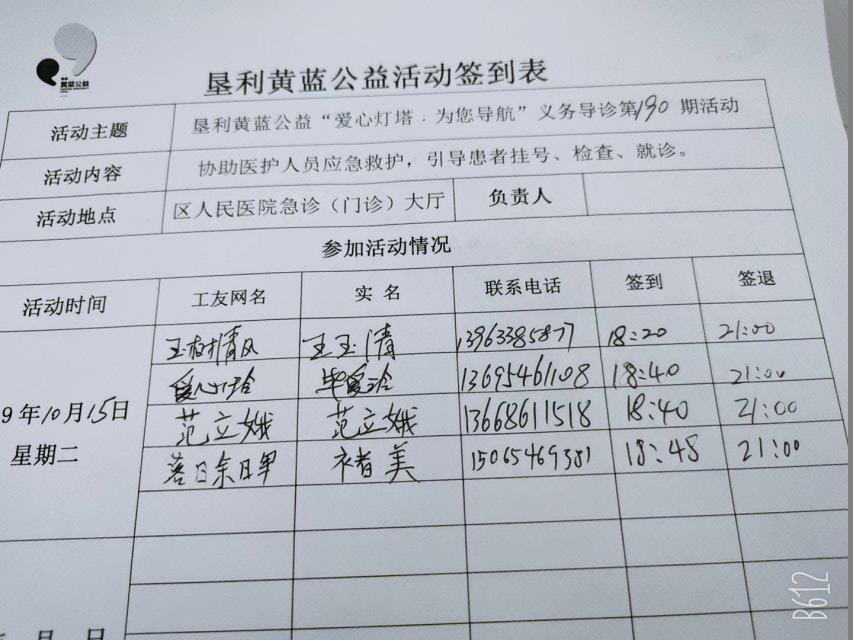 黄蓝公益
垦利黄蓝公益活动签到表
活动主题 垦利黄蓝公益“爱心灯塔.为您导航”义务导诊第190期活动
活动内容 协助医护人员应急救护，引导患者挂号、检查、就诊。
活动地点 区人民医院急诊（门诊）大厅 负责人
参加活动情况
活动时间 工友网名 实名 联系电话 签到 签退
玉树清风 王玉清 13963385877 18:20 21:00
爱心 13695461108 18:40 21:00
9年10月15日 范立娥 范立娥 13668611518 18:40 21:00
星期二 落日余日军 褚美 15065469381 18:48 21:00
月 日
B612